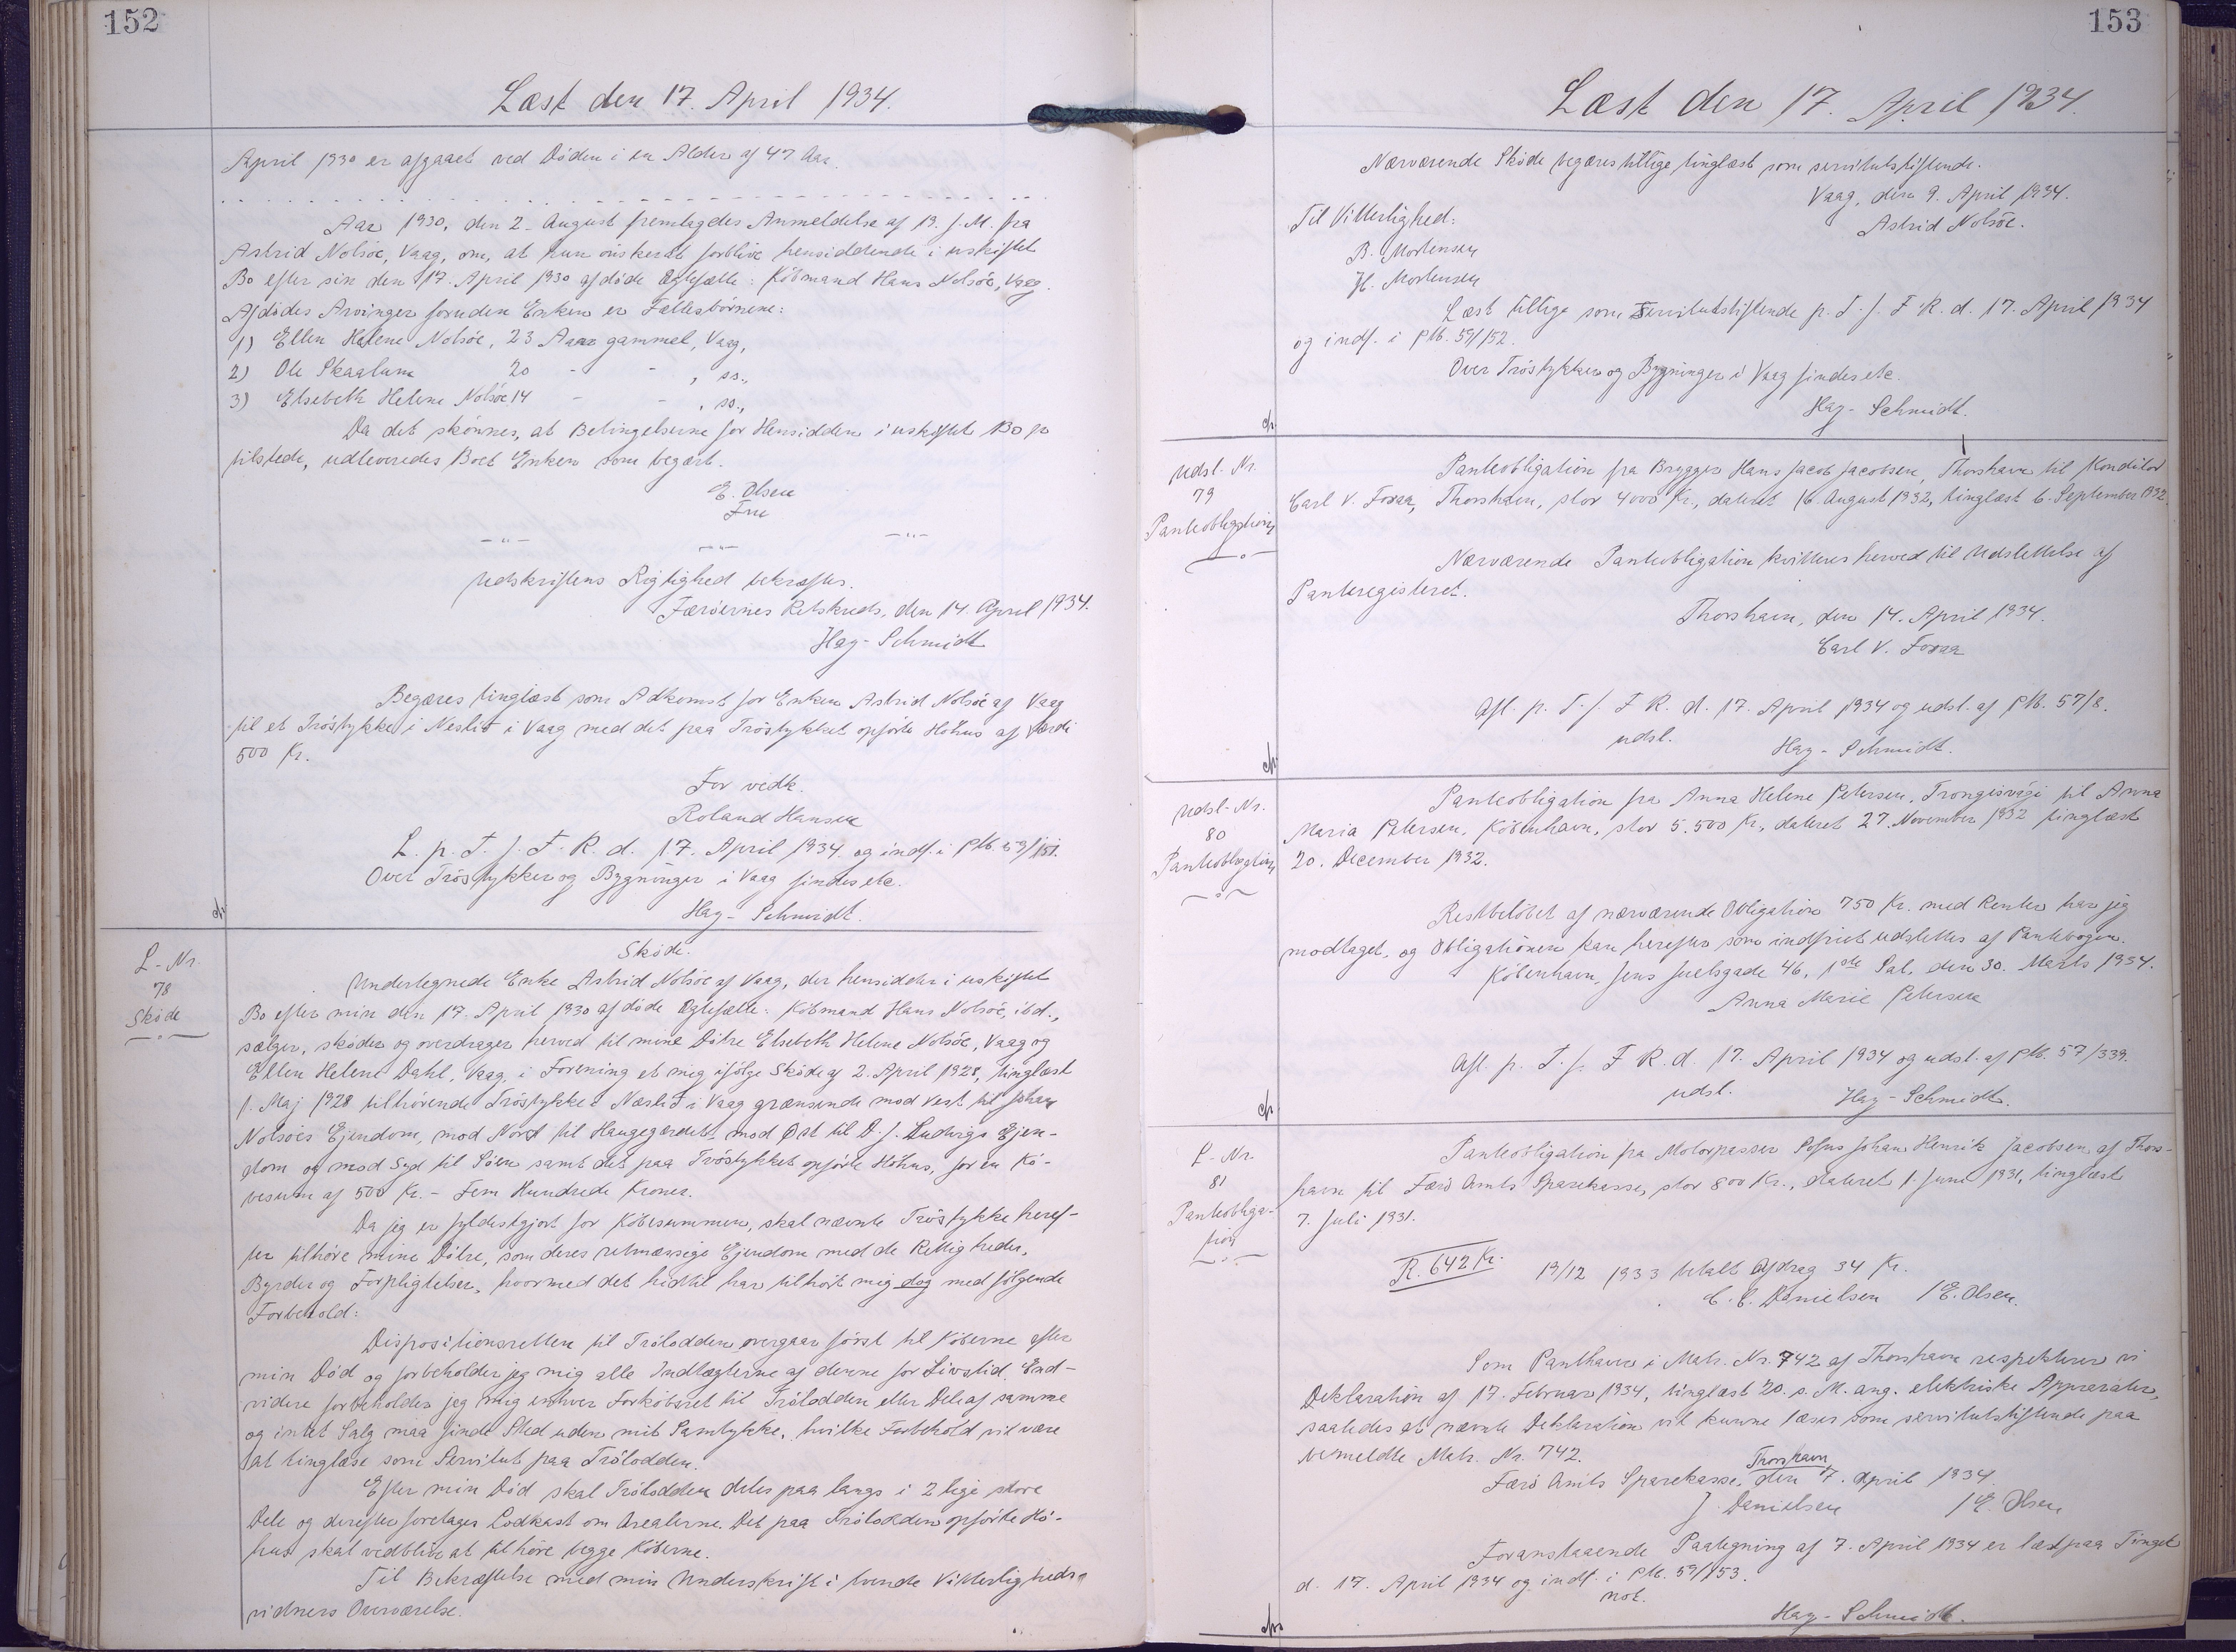 152
Læst den 17. April 1934.
April 1930 er afgaaet ved Døden i en Alder af 47 Aar.
Aar 1930, den 2. August fremlagdes Anmeldelse af 19. f. M. fra
Astrid Nolsøe, Vaag, om, at hun ønsker at forblive hensiddende i uskiftet
Bo efter sin den 17. April 1930 afdøde Ægtefælle: Købmand Hans Nolsøe, Vaag.
Afdødes Arvinger foruden Enken er Fællesbørnene:
1) Ellen Helene Nolsøe, 23 Aar gammel, Vaag,
2) Ole Skaalum 20 - - , ss.,
3) Elsebeth Helene Nolsøe 14 - - , ss.,
Da det skønnes, at Betingelserne for Hensidden i uskiftet Bo er
tilstede, udleveredes Boet Enken som begært.
E. Olsen
Fm
-"- -"- -"-
Udskriftens Rigtighed bekræftes.
Færøernes Retskreds, den 14. April 1934.
Hag-Schmidt
Begæres tinglæst som Adkomst for Enken Astrid Nolsøe af Vaag
til et Trøstykke i Neslið i Vaag med det paa Trøstykket opførte Høhus af Værdi
500 Kr.
For vedk.
Roland Hansen
L. p. T. f. F. R. d. 17. April 1934 og indf. i PM. 59/151.
Over Trøstykker og Bygninger i Vaag findes etc.
Hag-Schmidt.
L-Nr.
78
Skøde
Skøde.
Undertegnede Enke Astrid Nolsøe af Vaag, der hensidder i uskiftet
Bo efter min den 17. April 1930 afdøde Ægtefælle: Købmand Hans Nolsøe, ibd.,
sælger, skøder og overdrager herved til mine Døtre Elsebeth Helene Nolsøe, Vaag og
Ellen Helene Dahl, Vaag, i Forening et mig ifølge Skøde af 2. April 1928, tinglæst
1. Maj 1928 tilhørende Trøstykke Neslið i Vaag grænsende mod Vest til Johan
Nolsøes Ejendom, mod Nord til Haugegærdet, mod Øst til D. J. Ludvigs Ejen-
dom og mod Syd til Søen samt det paa Trøstykket opførte Høhus, for en Kø-
besum af 500 Kr. - Fem Hundrede Kroner.
Da jeg er fyldestgjort for Købesummen, skal nævnte Trøstykke heref-
ter tilhøre mine Døtre, som deres retmæssige Ejendom med de Rettigheder,
Byrder og Forpligtelser, hvormed det hidtil har tilhørt mig dog med følgende
Forbehold:
Dispositionsretten til Trølodden overgaar først til Køberne efter
min Død og forbeholder jeg mig alle Indtægterne af denne for Livstid. End-
videre forbeholder jeg mig enhver Forkøbsret til Trølodden eller Dele af samme
og intet Salg maa finde Sted uden mit Samtykke, hvilke Forbehold vil være
at tinglæse som Servitut paa Trølodden.
Efter min Død skal Trølodden deles paa langs i 2 lige store
Dele og derefter foretages Lodkast om Arealerne. Det paa Trølodden opførte Hø-
hus skal vedblive at tilhøre begge Køberne.
Til Bekræftelse med min Underskrift i tvende Vitterligheds-
vidners Overværelse.
153
Læst den 17. April 1934.
Nærværende Skøde begæres tillige tinglæst som servitutstiftende.
Vaag, den 9. April 1934.
Til Vitterlighed:
Astrid Nolsøe.
B. Mortensen
H. Mortensen
Læst tillige som Servitutstiftende p. T. f. F. R. d. 17. April 1934
og indf. i PM. 59/152.
Over Trøstykker og Bygninger i Vaag findes etc.
Hag-Schmidt.
Udsl. Nr.
79
Panteobligation
Panteobligation fra Brygger Hans Jacob Jacobsen, Thorshavn til Konditor
Carl V. Foraa, Thorshavn, stor 4000 Kr., dateret 16. August 1932, tinglæst 6. September 1932.
Nærværende Panteobligation kvitteres herved til Udslettelse af
Panteregisteret.
Thorshavn, den 14. April 1934.
Carl V. Foraa
Afl. p. T. f. F. R. d. 17. April 1934 og udsl. af PM. 57/8.
udsl.
Hag-Schmidt.
Udsl-Nr.
80
Panteobligation
Panteobligation fra Anna Helene Petersen, Trongisvági til Anna
Maria Petersen, København, stor 5.500 Kr., dateret 27. November 1932 tinglæst
20. December 1932.
Restbeløbet af nærværende Obligation 750 Kr. med Renter har jeg
modtaget, og Obligationen kan herefter som indfriet udslettes af Pantebogen.
København, Jens Juelsgade 46, 1ste Sal, den 30. Marts 1934.
Anna Marie Petersen
Afl. p. T. f. F. R. d. 17. April 1934 og udsl. af PM. 57/339.
udsl.
Hag-Schmidt.
L-Nr.
81
Panteobliga-
tion
Panteobligation fra Motorpasser Johan Henrik Jacobsen af Thors-
havn til Færø Amts Sparekasse, stor 800 Kr., dateret 1. Juni 1931, tinglæst
7. Juli 1931.
R. 642 Kr.
19/12 1933 betalt Afdrag 34 Kr.
C. C. Danielsen /E. Olsen.
Som Panthaver i Matr. Nr. 742 af Thorshavn respekterer vi
Deklaration af 17. Februar 1934, tinglæst 20. s. M. ang. elektriske Apparater,
saaledes at nævnte Deklaration vil kunne læses som servitutstiftende paa
bemeldte Matr. Nr. 742.
Thorshavn
Færø Amts Sparekasse, den 7. April 1934.
J. Danielsen /E. Olsen
Foranstaaende Paategning af 7. April 1934 er læst paa Tinget
d. 17. April 1934 og indf. i PM. 59/153.
not.
Hag-Schmidt.